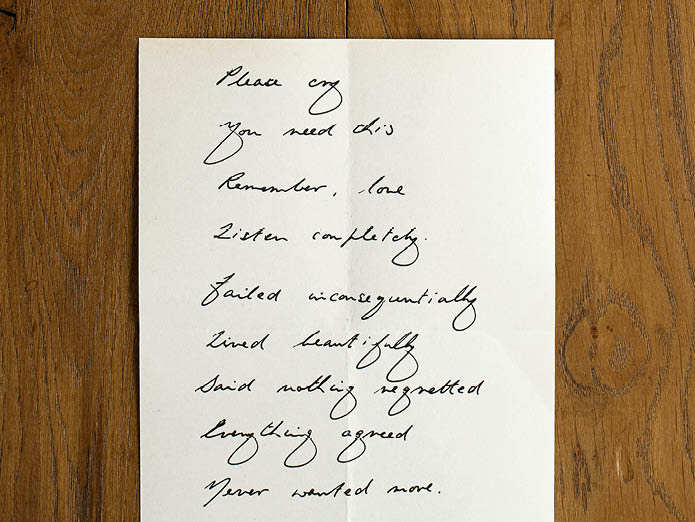 Please cry
You need this
Remember, love
Listen completely.
Failed inconsequentially
Lived beautifully
Said nothing regretted
Everything agreed
Never wanted more.